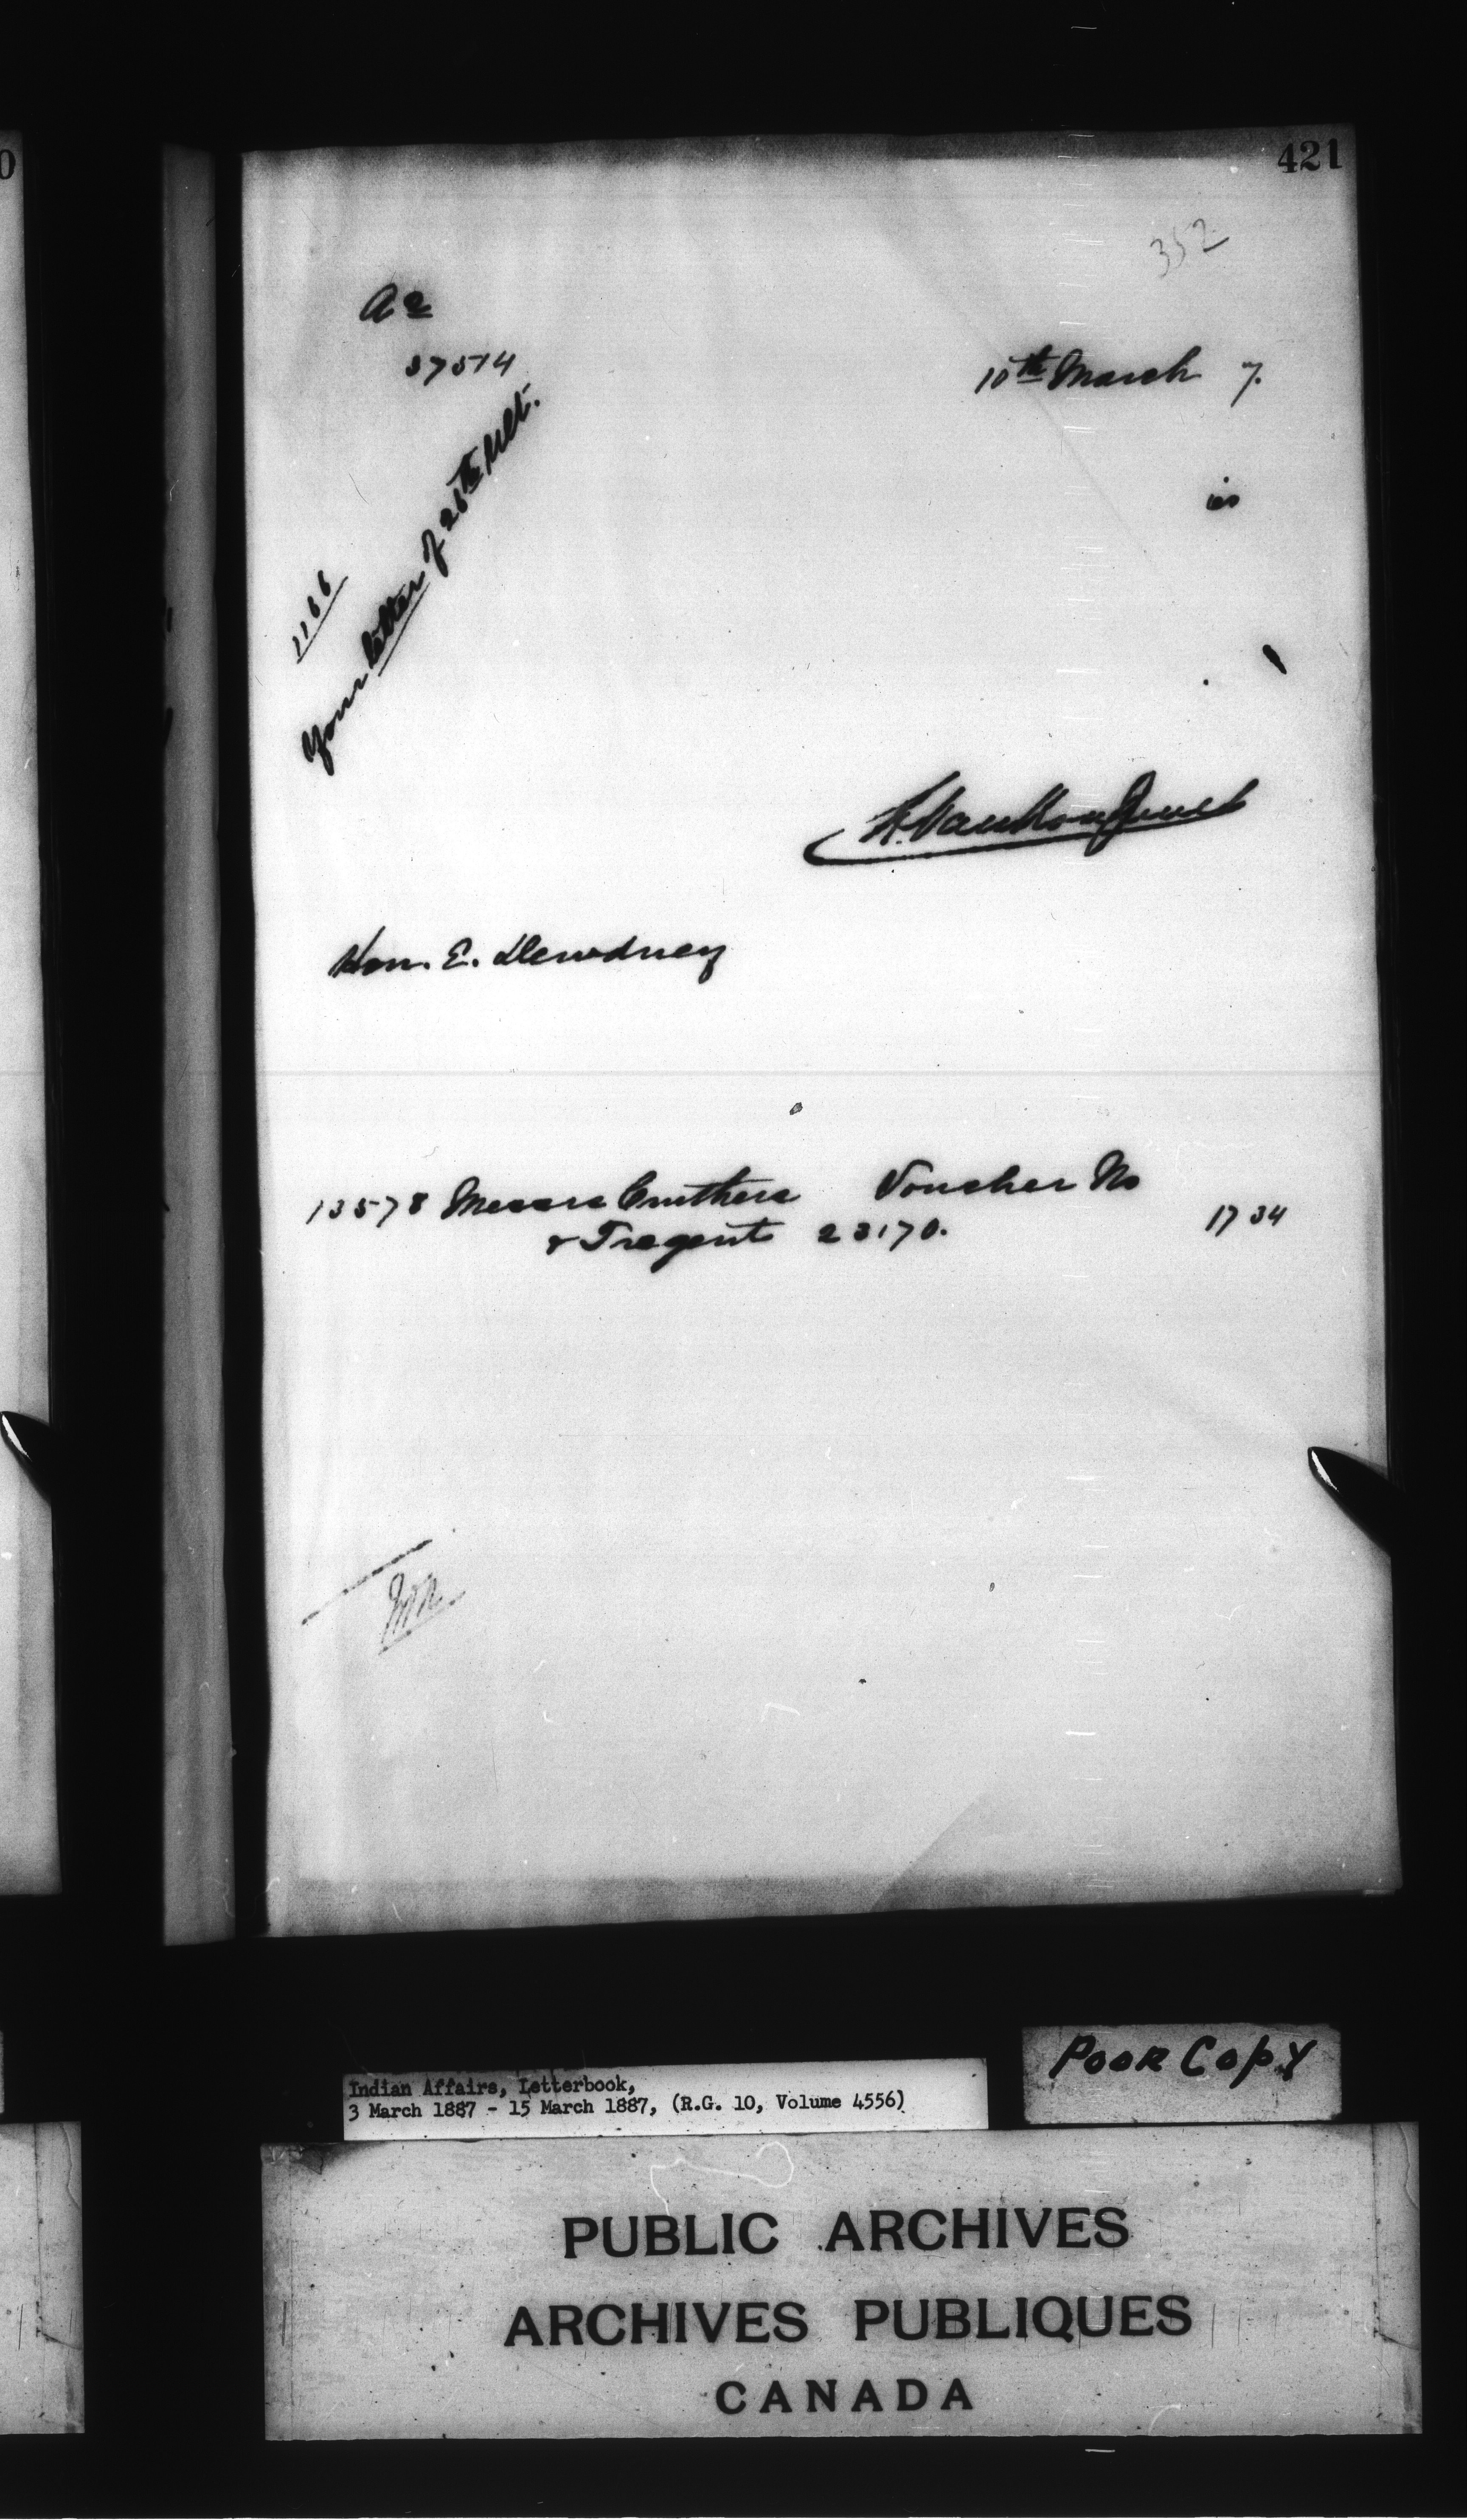 421
352
37514
10th March 7.
is
1166
Your letter of 26th Ult.
L. VanKoughnet
Hon. E. Dewdney
13578 Messrs Cruthers Voucher No
& Tregent 23170. 1734
Poor Copy
Indian Affairs, Letterbook,
3 March 1887 - 15 March 1887, (R.G. 10, Volume 4556)
PUBLIC ARCHIVES
ARCHIVES PUBLIQUES
CANADA